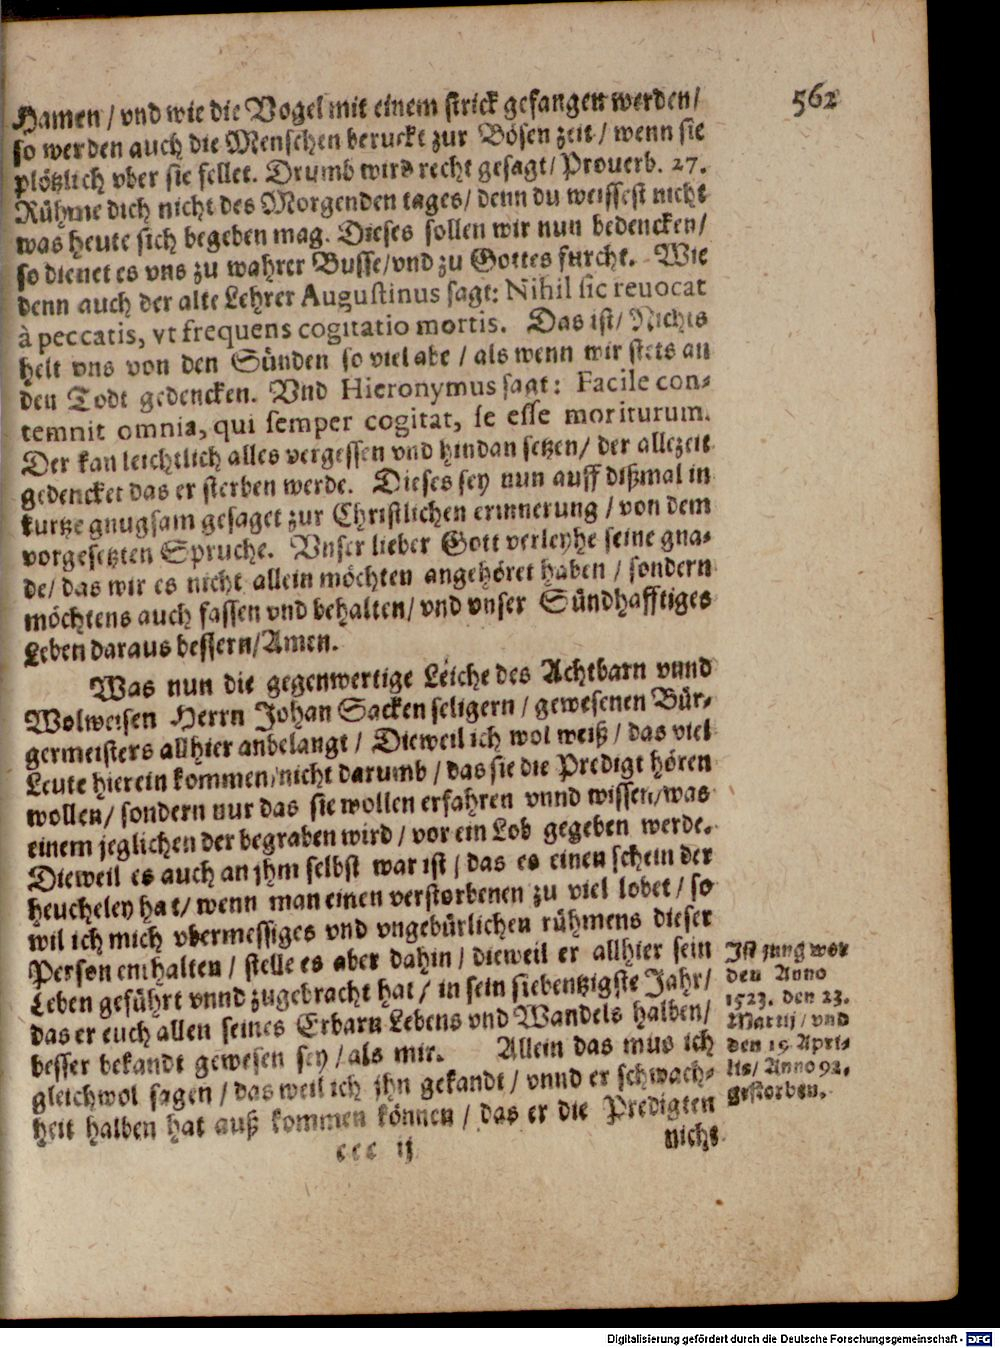 562
Hamen / vnd wie die Vogel mit einem strick gefangen werden /
so werden auch die Menschen beruckt zur Bösen zeit / wenn sie
plötzlich vber sie fellet. Drumb wird recht gesagt / Prouerb. 27.
Rühme dich nicht des Morgenden tages / denn du weissest nicht
was heute sich begeben mag. Dieses sollen wir nun bedencken /
so dienet es vns zu wahrer Busse / vnd zu Gottes furcht. Wie
denn auch der alte Lehrer Augustinus sagt: Nihil sic reuocat
à peccatis, vt frequens cogitatio mortis. Das ist / Nichts
helt vns von den Sünden so viel abe / als wenn wir stets an
den Todt gedencken. Vnd Hieronymus sagt: Facile con-
temnit omnia, qui semper cogitat, se esse moriturum.
Der kan leichtlich alles vergessen vnd hindan setzen / der allezeit
gedencket das er sterben werde. Dieses sey nun auff dißmal in
kurtze gnugsam gesaget zur Christlichen erinnerung / von dem
vorgesetzten Spruche. Vnser lieber Gott verleyhe seine gna-
de / das wir es nicht allein möchten angehöret haben / sondern
möchtens auch fassen vnd behalten / vnd vnser Sündhafftiges
Leben daraus bessern / Amen.
Was nun die gegenwertige Leiche des Achtbarn vnnd
Wolweisen Herrn Johan Sacken seligern / gewesenen Bür-
germeisters allhier anbelangt / Dieweil ich wol weiß / das viel
Leute hierein kommen / nicht darumb / das sie die Predigt hören
wollen / sondern nur das sie wollen erfahren vnnd wissen / was
einem jeglichen der begraben wird / vor ein Lob gegeben werde.
Dieweil es auch an jhm selbst war ist / das es einen schein der
heucheley hat / wenn man einen verstorbenen zu viel lobet / so
wil ich mich vbermessiges vnd vngebürlichen rühmens dieser
Person enthalten / stelle es aber dahin / dieweil er allhier sein
Leben geführt vnnd zugebracht hat / in sein siebentzigste Jahr /
das er euch allen seines Erbarn Lebens vnd Wandels halben /
besser bekandt gewesen sey / als mir. Allein das mus ich
gleichwol sagen / das weil ich jhn gekandt / vnnd er schwach-
heit halben hat auß kommen können / das er die Predigten
ccc ij
nicht
Ist jung wor
den Anno
1523. den 23.
Martij / vnd
den 19 Apri-
lis / Anno 92.
gestorben.
Digitalisierung gefördert durch die Deutsche Forschungsgemeinschaft - DFG